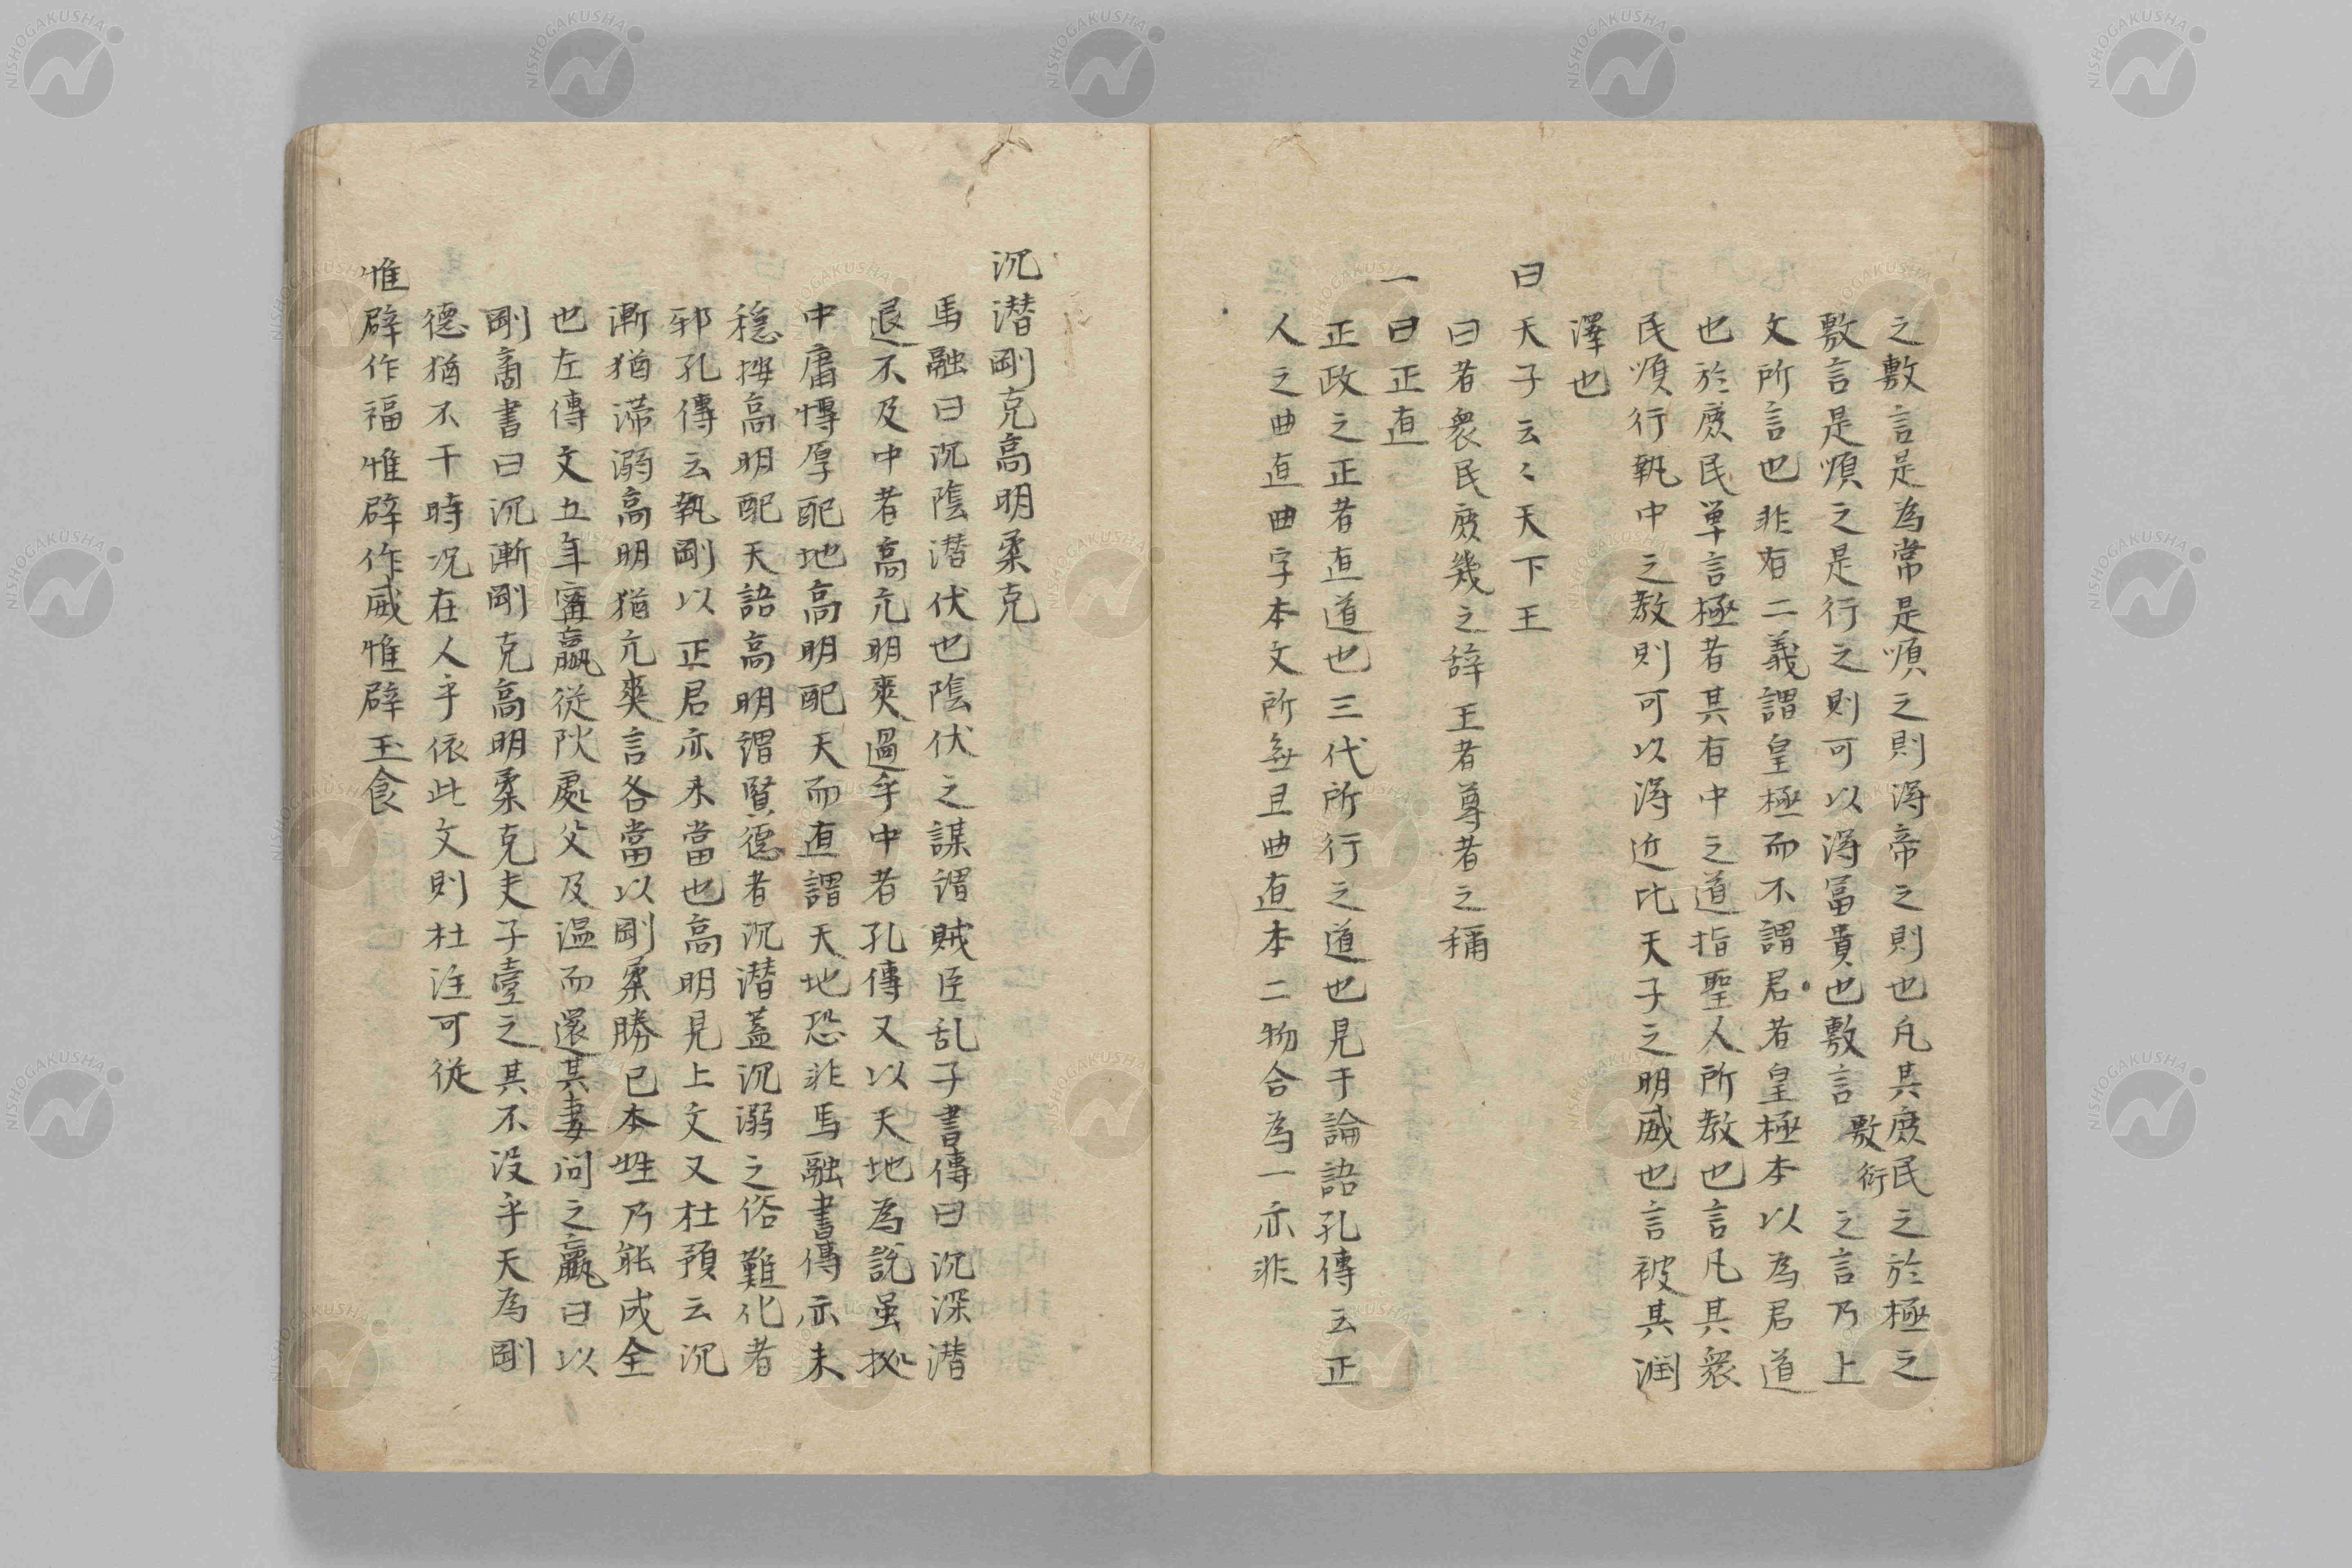 之敷言是為常是順之則得帝之則也凡其庻民之於極之
敷言是順之是行之則可以得冨貴也敷言敷衍之言乃上
文所言也非有二義謂皇極而不謂君者皇極本以為君道
也於庻民单言極者其有中之道指聖人所教也言凡其衆
民順行執中之教則可以得近比天子之明威也言被其潤
澤也
曰天子云〻天下王
曰者衆民庻幾之辞王者尊者之稱
一曰正直
正政之正者直道也三代所行之道也見于論語孔傳云正
人之曲直曲字本文所無且曲直本二物合為一亦非
沉潜剛克高明柔克
馬融曰沉陰潜伏也陰伏之謀謂賊臣乱子書傳曰沉深潜
退不及中者高亢明爽過乎中者孔傳又以天地為説虽拠
中庸博厚配地高明配天而直謂天地恐非馬融書傳亦未
穏按高明配天語高明謂賢徳者沉潜蓋沉溺之俗難化者
邪孔傳云執剛以正君亦未當也高明見上文又杜預云沉
漸猶滞溺高明猶亢爽言各當以剛柔勝己本性乃能成全
也左傳文五年甯嬴従陽處父及温而還其妻问之嬴曰以
剛商書曰沉漸剛克高明柔克夫子壹之其不没乎天為剛
德猶不干時况在人乎依此文則杜注可従
惟辟作福惟辟作威惟辟玉食
NISHOGAKUSHA